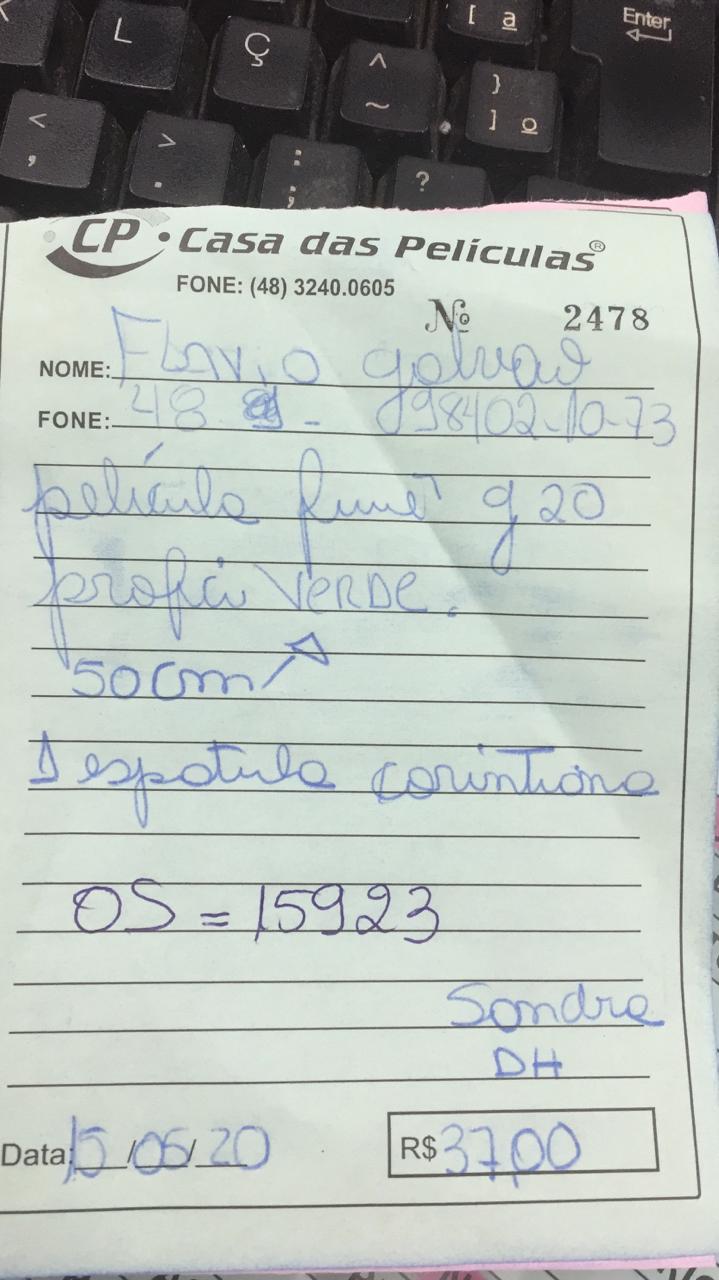 Ç L [ ª Enter
^ ~ } ] º
< , > . : ; ?
CP • Casa das Películas®
FONE: (48) 3240.0605
Nº 2478
NOME: Flavio galvao
FONE: 48 9 - 98402-10-73
película fumê g 20
profix VERDE.
50cm
1 espatula corintiana
OS = 15923
Sandra
DH
Data: 15/05/20 R$ 37,00